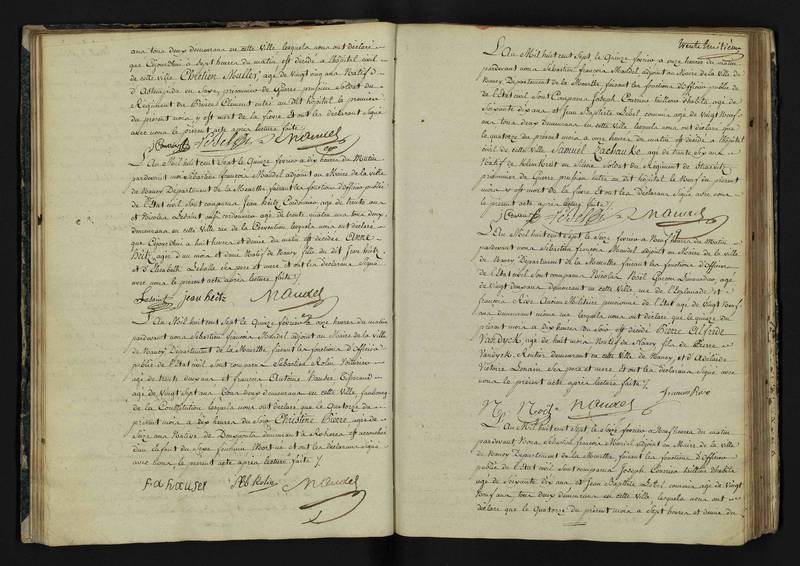 ans tous deux demeurans en cette Ville lesquels nous ont déclaré
que cejourdhui à Sept heures du matin est décédé à l'hôpital civil
de cette ville Chretien Muller age de Vingt cinq ans Natif d'
en Saxe, prisonnier de Guerre prussien Soldat du
Régiment du Prince Clement entré au dit hôpital le premier
du présent mois, y est mort de la fievre et ont les déclarans Signé
avec nous le présent acte après lecture faite
Mandel
L'An Mil huit cent Sept le Quinze fevrier a dix heures du Matin
pardevant nous Sebastien françois Mandel adjoint au Maire de la Ville
de Nancy Département de la Meurthe faisant les fonctions d'Officier public
de l'Etat civil Sont comparus Jean heitz Cordonnier age de trente ans
et Nicolas aussi cordonnier age de trente quatre ans tous deux
demeurans en cette Ville rue de la lesquels nous ont declaré
que Cejourdhui a huit heures et demie du matin est décédée Anne
heitz, age d'un mois et deux Natif de Nancy fille du dit Jean heitz
et d'Elisabeth ses pere et mere et ont les déclarans Signé
avec nous le présent acte après lecture faite
jean heitz Mandel
L'An Mil huit cent Sept le Quinze fevrier a onze heures du matin
pardevant nous Sebastien françois Mandel adjoint au Maire de la Ville
de Nancy Département de la Meurthe faisant les fonctions d'Officier
public de l'Etat civil sont comparus Sebastien Rolin Voiturier
age de trente deux ans et francois Antoine hauser Tisserand
age de Vingt Sept ans tous deux demeurans en cette Ville faubourg
de la Constitution lesquels nous ont declaré que le Quatorze du
présent mois a dix heures du Soir Christine Pierre agée de
Seize ans Native de demeurant à
du sexe
avec nous le présent acte après lecture faite
fa hauser Seb Rolin Mandel
trente huitième
L'An Mil huit cent Sept le Quinze fevrier a onze heures du matin
pardevant nous Sebastien françois Mandel, adjoint au Maire de la Ville de
Nancy Département de la Meurthe faisant les fonctions d'Officier public de
l'Etat civil Sont Comparus Joseph tailleur d'habits age de
Soixante dix ans et Jean Baptiste Lebel commis age de Vingt Neuf
ans tous deux demeurans en cette Ville lesquels nous ont declaré que
le quatorze du présent mois a une heure du matin est décédé à l'hôpital
civil de cette Ville Samuel Zachauke agé de trente Six ans
Natif de en Soldat du Régiment de
prisonnier de Guerre prussien entré au dit hôpital le Neuf du présent
mois y est mort de la fievre. Et ont les déclarans Signé avec nous
le présent acte après lecture faite
Mandel
L'An Mil huit cent Sept le Seize fevrier a Neuf heures du Matin
pardevant nous Sebastien françois Mandel adjoint au Maire de la Ville
de Nancy Département de la Meurthe faisant les fonctions d'Officier
de l'Etat civil sont comparus Nicolas Noel Garcon age
de Vingt deux ans demeurant en cette Ville rue de l'Esplanade et
françois Rive Ancien Militaire pensionné de l'Etat age de Vingt Neuf
ans demeurant même rue lesquels nous ont declaré que le quinze du
présent mois a dix heures du Soir est décédé Pierre Alfride
Vandyck age de huit mois Natif de Nancy fils de Pierre
Vandyck, Rentier demeurant en cette Ville de Nancy, et d'Adelaide
Victoire ses pere et mere. Et ont les déclarans Signé avec
nous le présent acte après lecture faite
N. Noel Mandel
L'An Mil huit cent Sept le Seize fevrier a Neuf heures du matin
pardevant Nous Sebastien françois Mandel adjoint au Maire de la Ville
de Nancy Département de la Meurthe faisant les fonctions d'Officier
public de l'Etat civil sont comparus Joseph tailleur d'habits
age de Soixante dix ans et Jean Baptiste Lebel commis age de Vingt
Neuf ans tous deux demeurans en cette Ville, lesquels nous ont
declaré que le Quatorze du présent mois a Sept heures et demie du